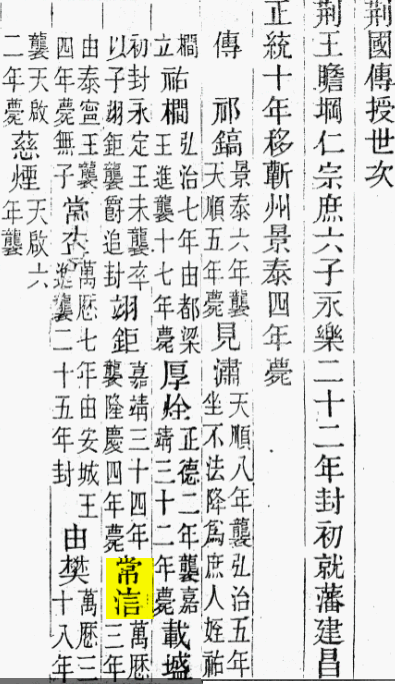 荆國傳授世次
荆王瞻堈仁宗庶六子永樂二十二年封初就藩建昌
正統十年移蘄州景泰四年薨
傳 祁鎬 景泰六年襲天順五年薨 見潚 天順八年襲弘治五年坐不法降爲庶人姪祐
橺立 祐橺 弘治七年由都梁王進襲十七年薨 厚烇 正德二年襲嘉靖三十二年薨 載墭
初封永定王未襲卒以子翊鉅襲爵追封 翊鉅 嘉靖三十四年襲隆慶四年薨 常 萬厯三年
由泰寧王襲四年薨無子 常 萬厯七年由安城王進襲二十五年封 由樊 萬厯三十八年
襲天啟二年薨 慈煙 天啟六年襲